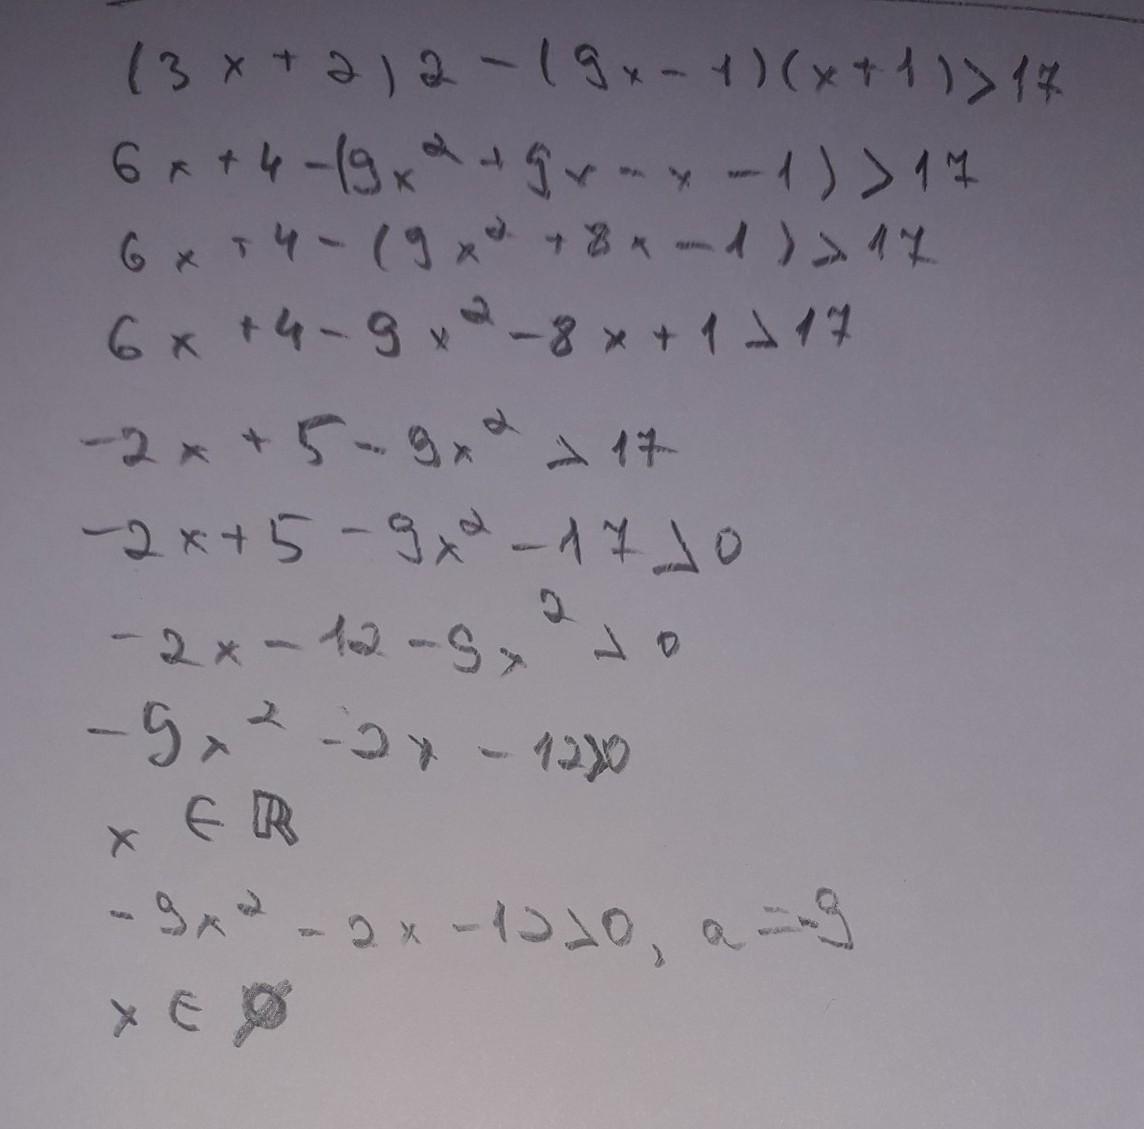 (3x+2)2-(9x-1)(x+1)>17
6x+4-(9x²+9x-x-1)>17
6x+4-(9x²+8x-1)>17
6x+4-9x²-8x+1>17
-2x+5-9x²>17
-2x+5-9x²-17>0
-2x-12-9x²>0
-9x²-2x-12>0
x∈ℝ
-9x²-2x-12>0, a=-9
x∈∅